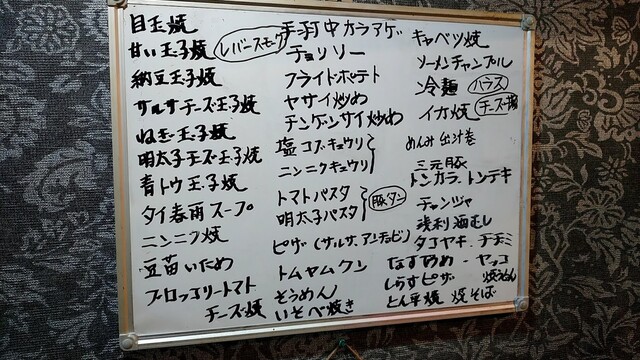 目玉焼
甘い玉子焼
レバースモーク
納豆玉子焼
サルサチーズ玉子焼
ねぎ玉子焼
明太子チーズ玉子焼
青トウ玉子焼
タイ春雨スープ
ニンニク焼
豆苗いため
ブロッコリートマト
チーズ焼
手羽中カラアゲ
チョリソー
フライドポテト
ヤサイ炒め
チンゲンサイ炒め
塩コブキュウリ
ニンニクキュウリ
トマトパスタ
明太子パスタ
豚タン
ピザ(サルサ、アンチョビ)
トムヤムクン
そうめん
いそべ焼き
キャベツ焼
ソーメンチャンプル
冷麺
ハラス
イカ焼
チーズ
めんみ出汁巻
三元豚
トンカラ、トンテキ
チャンヂャ
浅利酒むし
タコヤキ、チヂミ
なす炒め ヤッコ
しらすピザ 焼うどん
とん平焼 焼そば